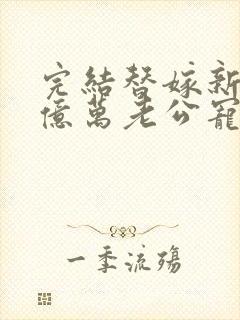 完結替嫁新
億萬老公寵
一季流殤